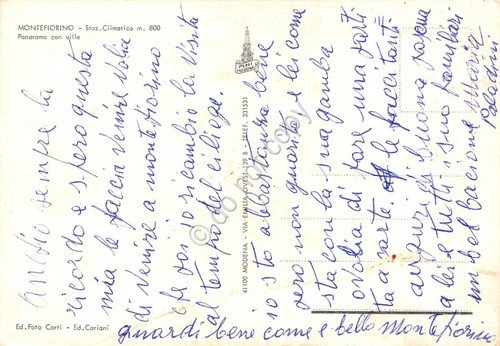 MONTEFIORINO - Staz. Climatica m. 800
Panorama con ville
sempre la
ricordo e spero questa
mia le faccia venire volia
di venire a montefiorino
che noi o ricambio la visita
al tempo del ciliege.
Ed. Foto Corti - Ed. Coriani
41100 MODENA - VIA EMILIA OVEST, 139 B - TELEF. 331531
io sto abbastanza bene
pero non guarita e lei come
sta con la sua gamba
ovolia di fare una parti
ta a carte. le faccio tanti
auguri di buona pasqua
a lei e tutti i suoi familiari
un bel bacione Maria
Paladini
guardi bene come e bello Montefiorino
do not copy